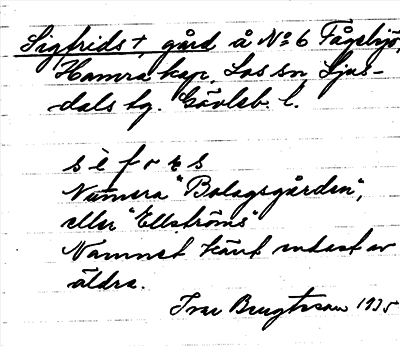 Sigfrids †, gård å No 6 Fågelsjö,
Hamra kap. Los sn, Ljus-
dals tg. Gävleb. l.
Numera "Bolagsgården",
eller "Ellströms"
Namnet känt endast av
äldra.
Ivar Bengtsson 1935